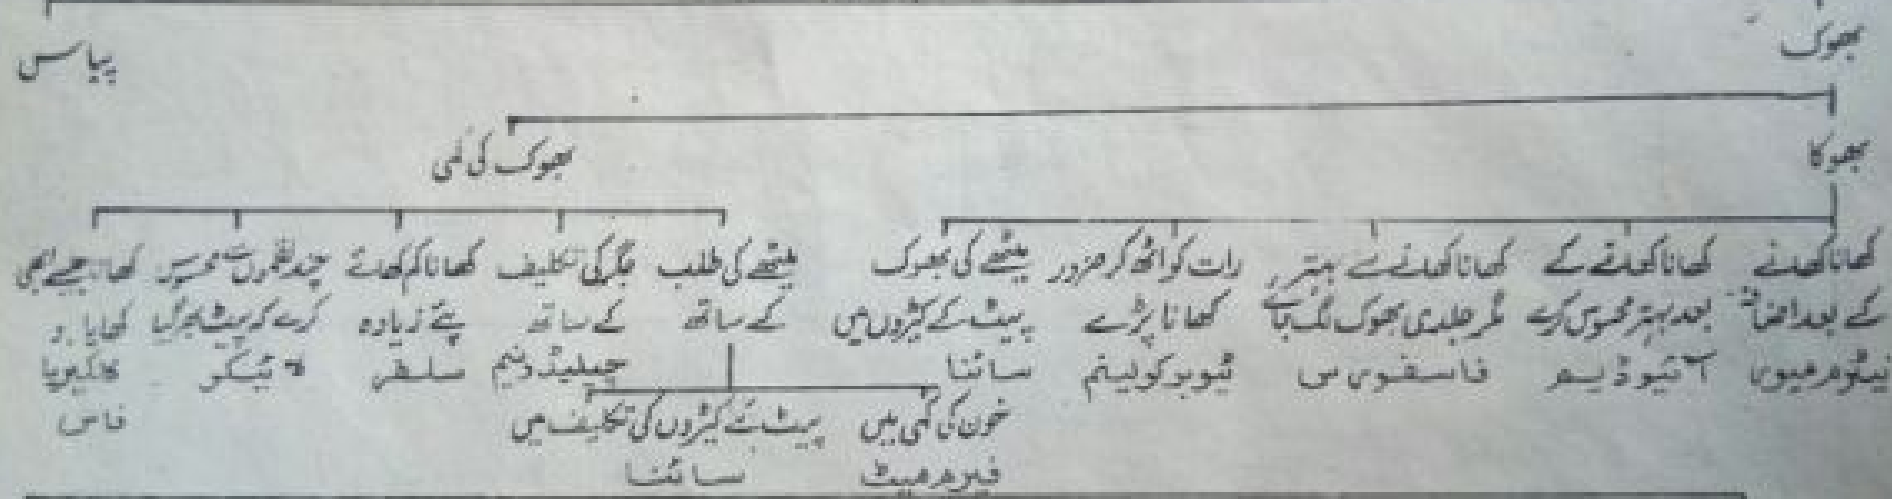 بھوک
پیاس
بھوکا
بھوک کی کمی
کھانا کھانے
کے بعد اضافہ
نیٹرم میور
کھانا کھانے کے
بعد بہتر محسوس کرے
آئیوڈیم
کھانا کھانے سے بہتر
مگر جلدی بھوک لگ جائے
فاسفورس
رات کو اٹھ کر ضرور
کھانا پڑے
ٹیوبرکولینم
میٹھے کی بھوک
پیٹ کے کیڑوں میں
سائنا
میٹھے کی طلب
کے ساتھ
جگر کی تکلیف
کے ساتھ
چیلیڈونیم
کھانا کم کھائے
پئے زیادہ
سلفر
چند لقموں سے محسوس
کرے کہ پیٹ بھر گیا
لائیکو
کھانا جیسے ابھی
کھایا ہو
کالکیریا
فاس
خون کی کمی میں
فیرم میٹ
پیٹ کے کیڑوں کی تکلیف میں
سائنا